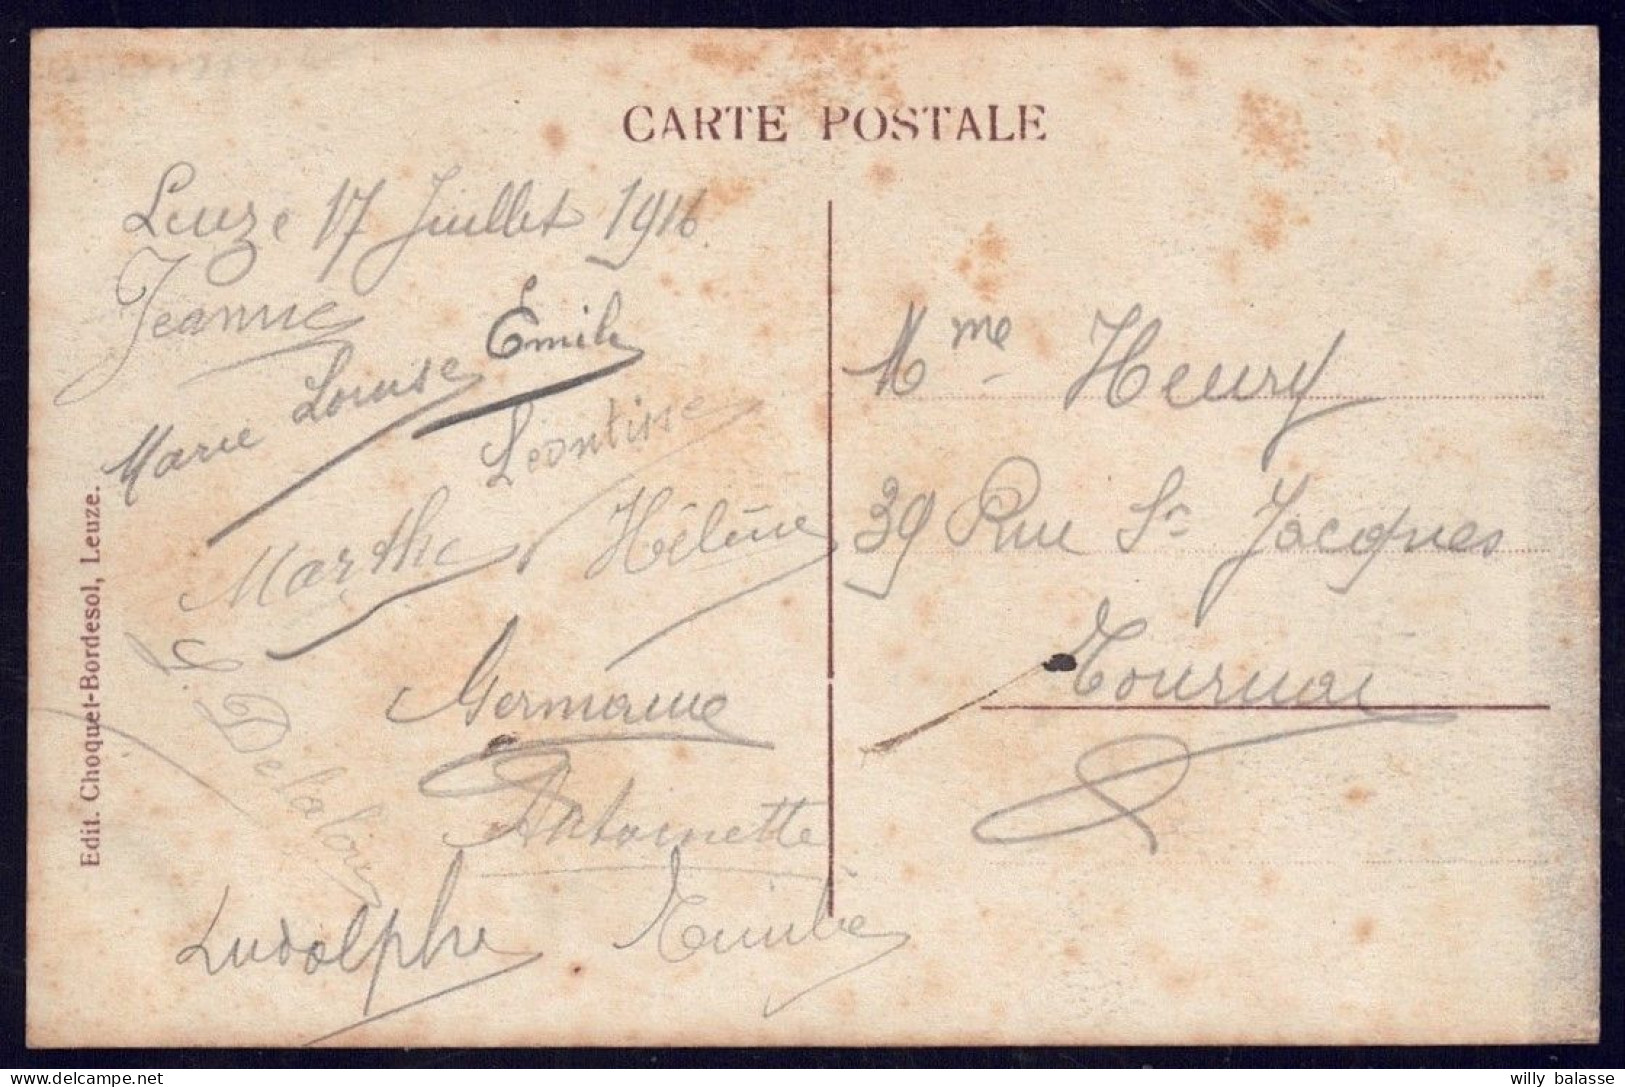 CARTE POSTALE
Leuze 17 Juillet 1916.
Jeanne
Emile
Marie Louise
Léontine
Marthe
Hélène
L. Delaloy
Germaine
Antoinette
Ludolphe
Emilie
Mme Henry
39 Rue St Jacques
Tournai
Edit. Choquet-Bordesol, Leuze.
willy balasse